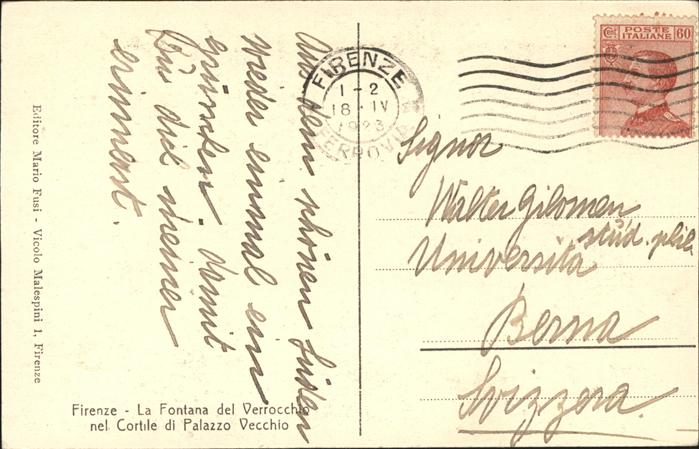 Aus dem schönen Süden
wieder einmal ein
Grüsschen. Damit
Du dich meiner
erinnerst.
Editore Mario Fusi - Vicolo Malespini 1, Firenze
Firenze - La Fontana del Verrocchio
nel Cortile di Palazzo Vecchio
FIRENZE
1-2
18·IV
1923
FERROVIA
POSTE
ITALIANE
60
Signor
Walter Gilomen
stud. phil
Università
Berna
Svizzera.